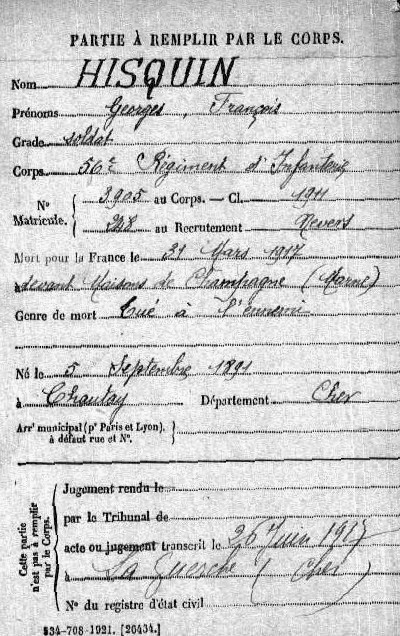 PARTIE À REMPLIR PAR LE CORPS.
Nom HISQUIN
Prénoms Georges, François
Grade soldat
Corps 56e Régiment d'Infanterie
N° Matricule. { 3905 au Corps. — Cl. 1911
au Recrutement Nevers
Mort pour la France le 21 Mars 1917
à devant Maisons de Champagne (Marne)
Genre de mort Tué à l'ennemi
Né le 5 Septembre 1891
à Chautay Département Cher
Arrt municipal (pr Paris et Lyon), à défaut rue et N°. }
Cette partie n'est pas à remplir par le Corps.
Jugement rendu le
par le Tribunal de
acte ou jugement transcrit le 26 Juin 1917
à La Guerche (Cher)
N° du registre d'état civil
534-708-1921. [26434.]